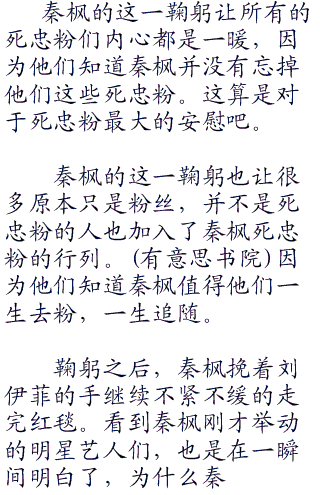 秦枫的这一鞠躬让所有的
死忠粉们内心都是一暖，因
为他们知道秦枫并没有忘掉
他们这些死忠粉。这算是对
于死忠粉最大的安慰吧。
秦枫的这一鞠躬也让很
多原本只是粉丝，并不是死
忠粉的人也加入了秦枫死忠
粉的行列。(有意思书院)因
为他们知道秦枫值得他们一
生去粉，一生追随。
鞠躬之后，秦枫挽着刘
伊菲的手继续不紧不缓的走
完红毯。看到秦枫刚才举动
的明星艺人们，也是在一瞬
间明白了，为什么秦